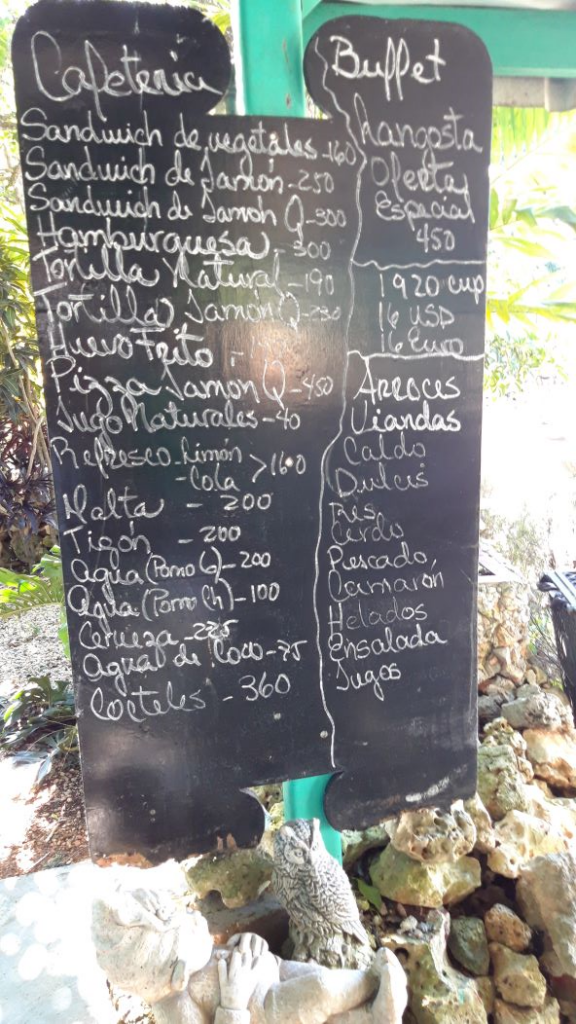 Cafeteria
Sandwich de vegetales - 160
Sandwich de Jamón - 250
Sandwich de Jamon Q - 300
Hamburguesa - 300
Tortilla Natural - 190
Tortilla Jamón Q - 230
Huevo Frito -
Pizza Jamon Q - 450
Jugo Naturales - 40
Refresco - Limón
- Cola > 160
Malta - 200
Tigón - 200
agua (Pomo G) - 200
agua (Pomo Ch) - 100
Cerveza - 225
agua de Coco - 75
Cocteles - 360
Buffet
Langosta
Oferta
Especial
450
1920 cup
16 USD
16 Euro
Arroces
Viandas
Caldo
Dulces
Res
Cerdo
Pescado
Camarón
Helados
Ensalada
Jugos